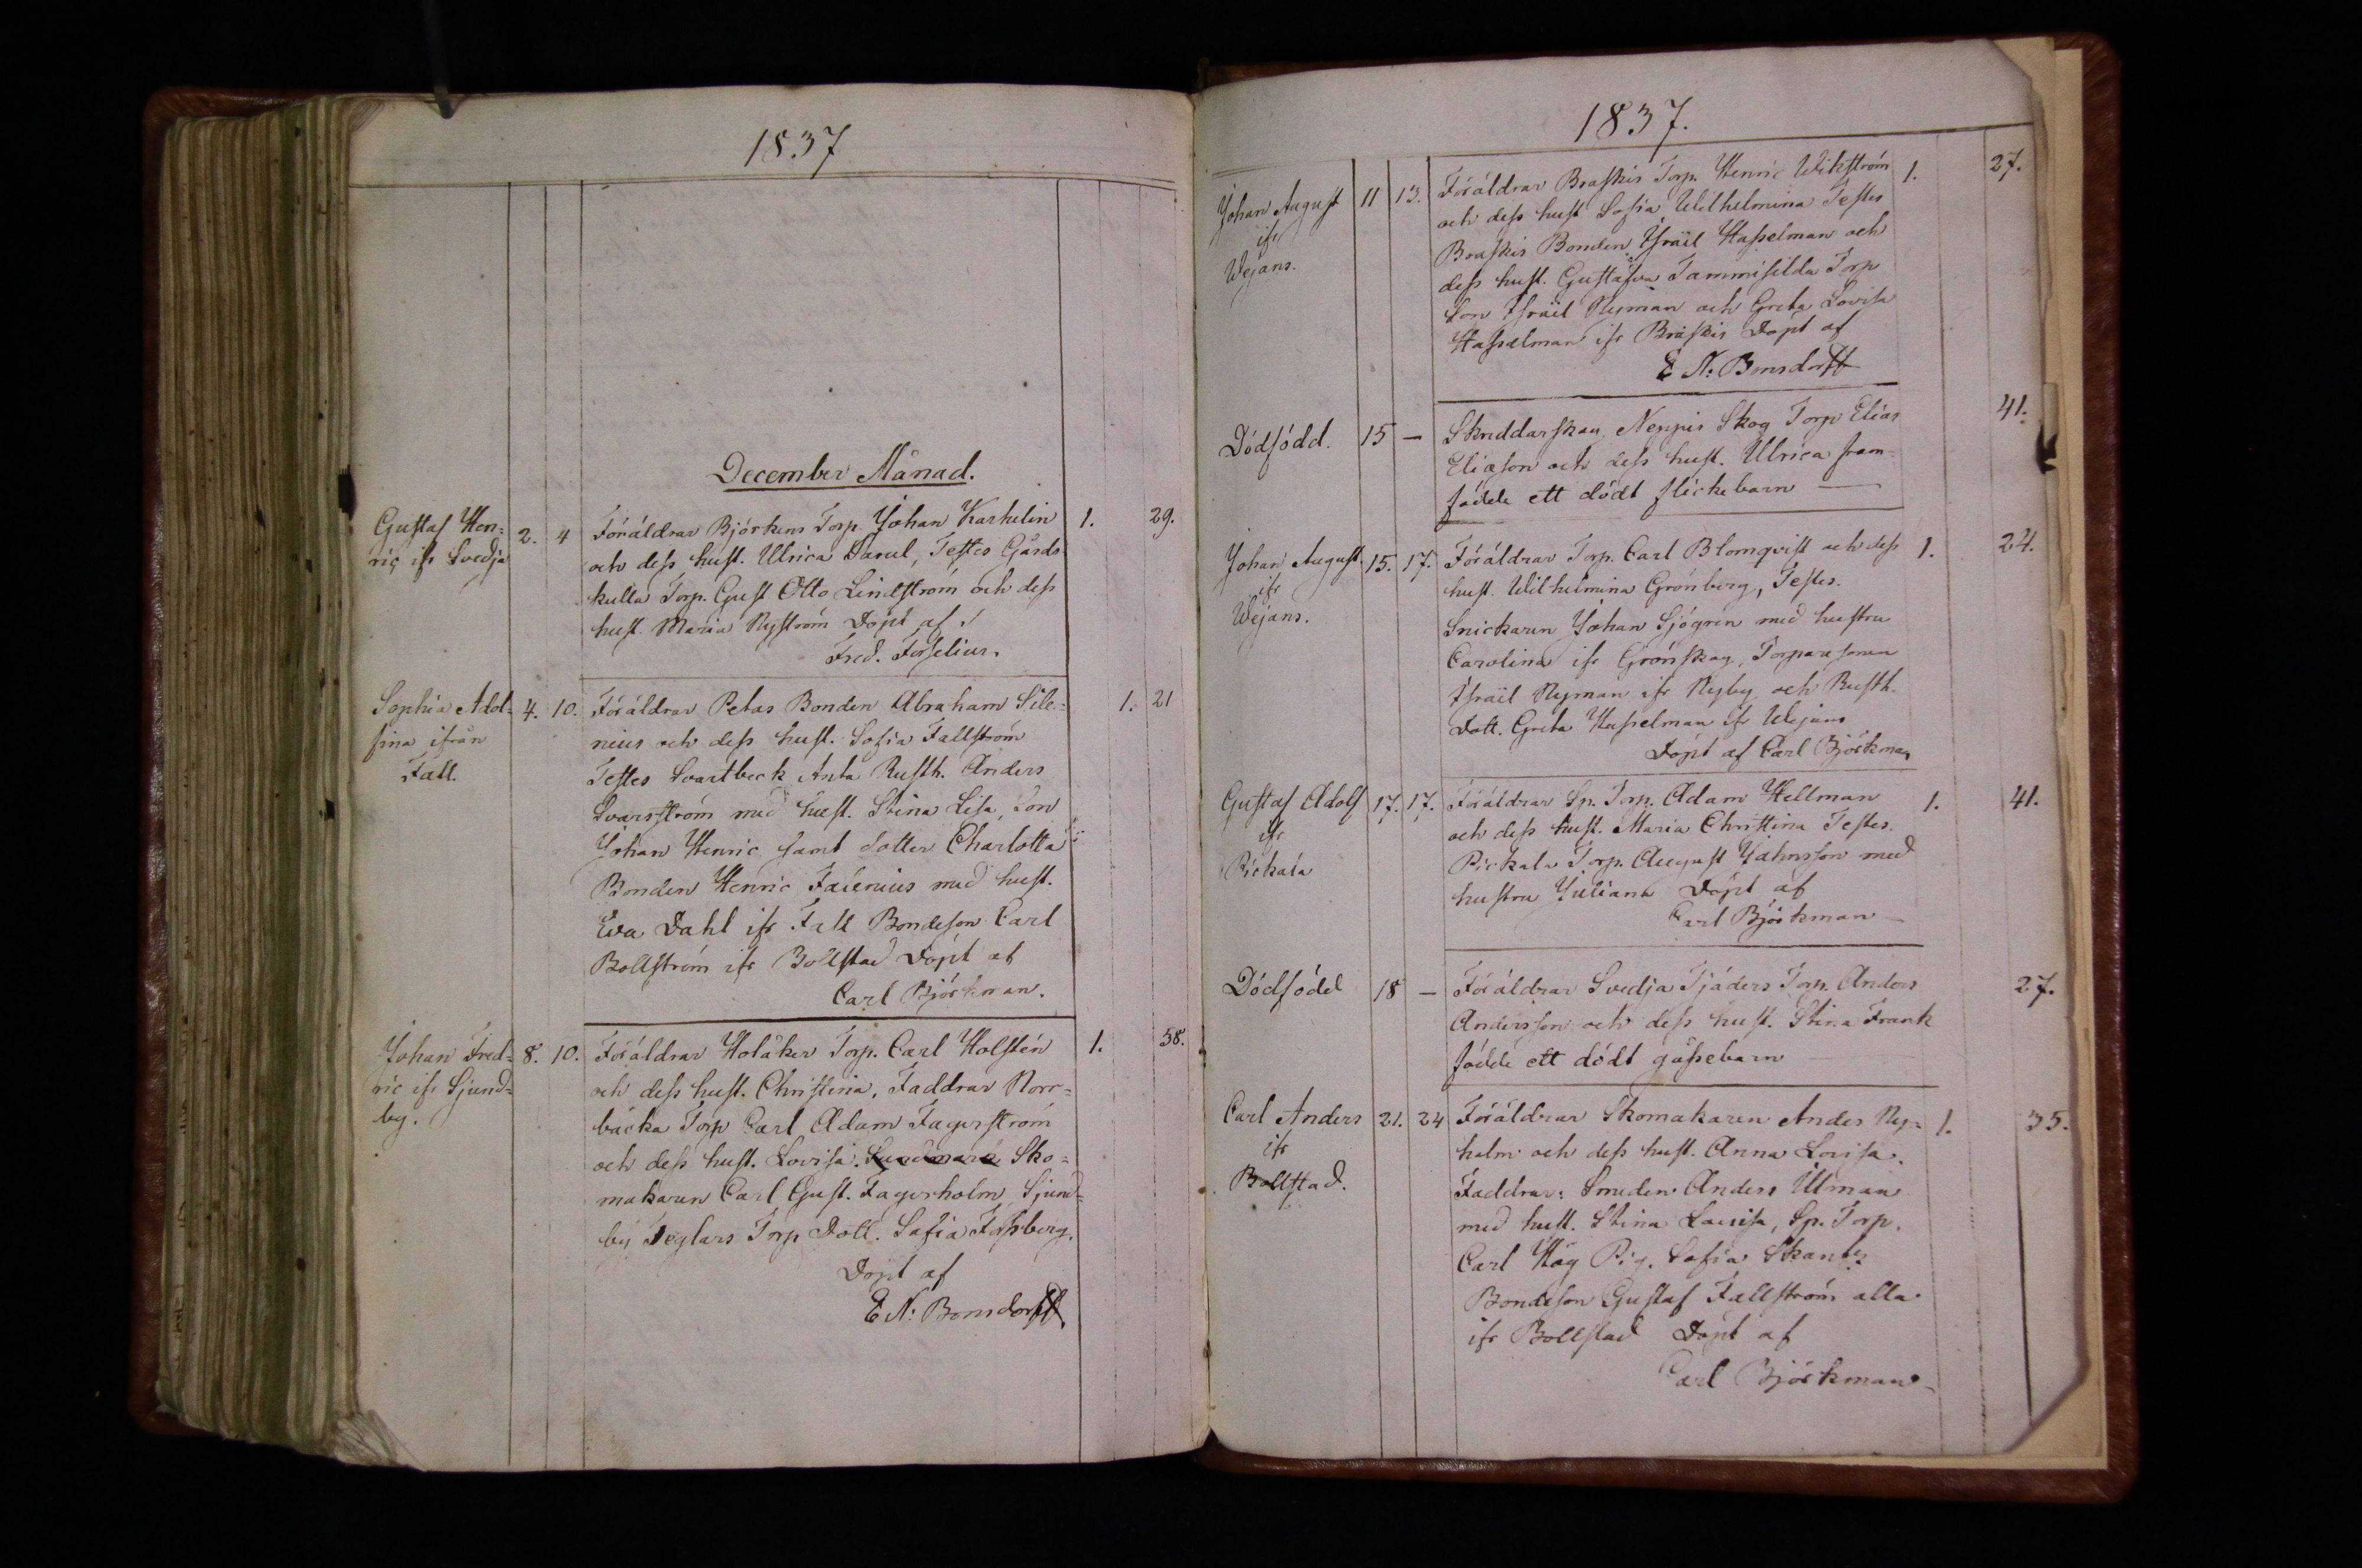 1837
December Månad.
Gustaf Hen=
ric ifr Svedja
2. 4
Föräldrar Björkens Torp. Johan Karhelin
och dess hust. Ulrica Saxul, Testes Gårds
kulla Torp. Gust Otto Lindström och dess
hust. Maria Nyström Döpt af
Fred. Forselius.
1. 29.
Sophia Adol=
fina ifrån
Fall.
4. 10.
Föräldrar Petas Bonden Abraham Sile=
nius och dess hust. Sofia Fallström
Testes Svartbeck Anta Rusth. Anders
Svarström med hust. Stina Lisa, Son
Johan Henric samt dotter Charlotta
Bonden Henric Facenius med hust.
Eva Dahl ifr Fall Bondeson Carl
Bollström ifr Bollstad Döpt af
Carl Björkman.
1. 21
Johan Fred=
ric ifr Sjund=
by.
8. 10.
Föräldrar Holåker Torp. Carl Holstén
och dess hust. Christina, Faddrar Norr=
backa Torp Carl Adam Fagerström
och dess hust. Lovisa Sko=
makaren Carl Gust. Fagerholm Sjund=
by Teglars Torp Dott. Sofia Forsberg.
Döpt af
E N: Bonsdorff.
1. 58.
1837.
Johan August
ifr
Wejans.
11 13.
Föräldrar Braskis Torp. Henric Wikström
och dess hust Sofia Wilhelmina Testes
Braskis Bonden Israël Hasselman och
dess hust. Gustafva Tammisilda Torp
Son Israël Nyman och Greta Lovisa
Hasselman ifr Braskis Döpt af
E N: Bonsdorff
1. 27.
Dödfödd. 15 —
Skreddarskau Neppis Skog Torp Elias
Eliason och dess hust. Ulrica fram-
födde ett dödt flickebarn —
41.
Johan August
ifr
Wejans.
15. 17.
Föräldrar Torp. Carl Blomqvist och dess
hust. Wilhelmina Grönberg, Testes.
Snickaren Johan Sjögren med hustru
Carolina ifr Grönskog, Torparesonen
Israël Nyman ifr Nyby och Rusth.
Dott. Greta Hasselman ifr Wejans
Döpt af Carl Björkman
1. 24.
Gustaf Adolf
ifr
Pickala
17. 17.
Föräldrar Sp. Torp. Adam Hellman
och dess hust. Maria Christina Testes.
Pickala Torp. August Jahnsson med
hustru Juliana Döpt af
Carl Björkman —
1. 41.
Dödfödd 18 —
Föräldrar Svedja Tjäders Torp. Anders
Andersson och dess hust. Stina Frank
födde ett dödt gåssebarn —
27.
Carl Anders
ifr
Bollstad.
21. 24
Föräldrar Skomakaren Andes Ny=
holm och dess hust. Anna Lovisa.
Faddrar: Smeden Anders Ulman
med hust. Stina Lovisa, Sp. Torp.
Carl Häg Pig. Sofia Skantz
Bondeson Gustaf Fallström alla
ifr Bollstad Döpt af
Carl Björkman
1. 35.